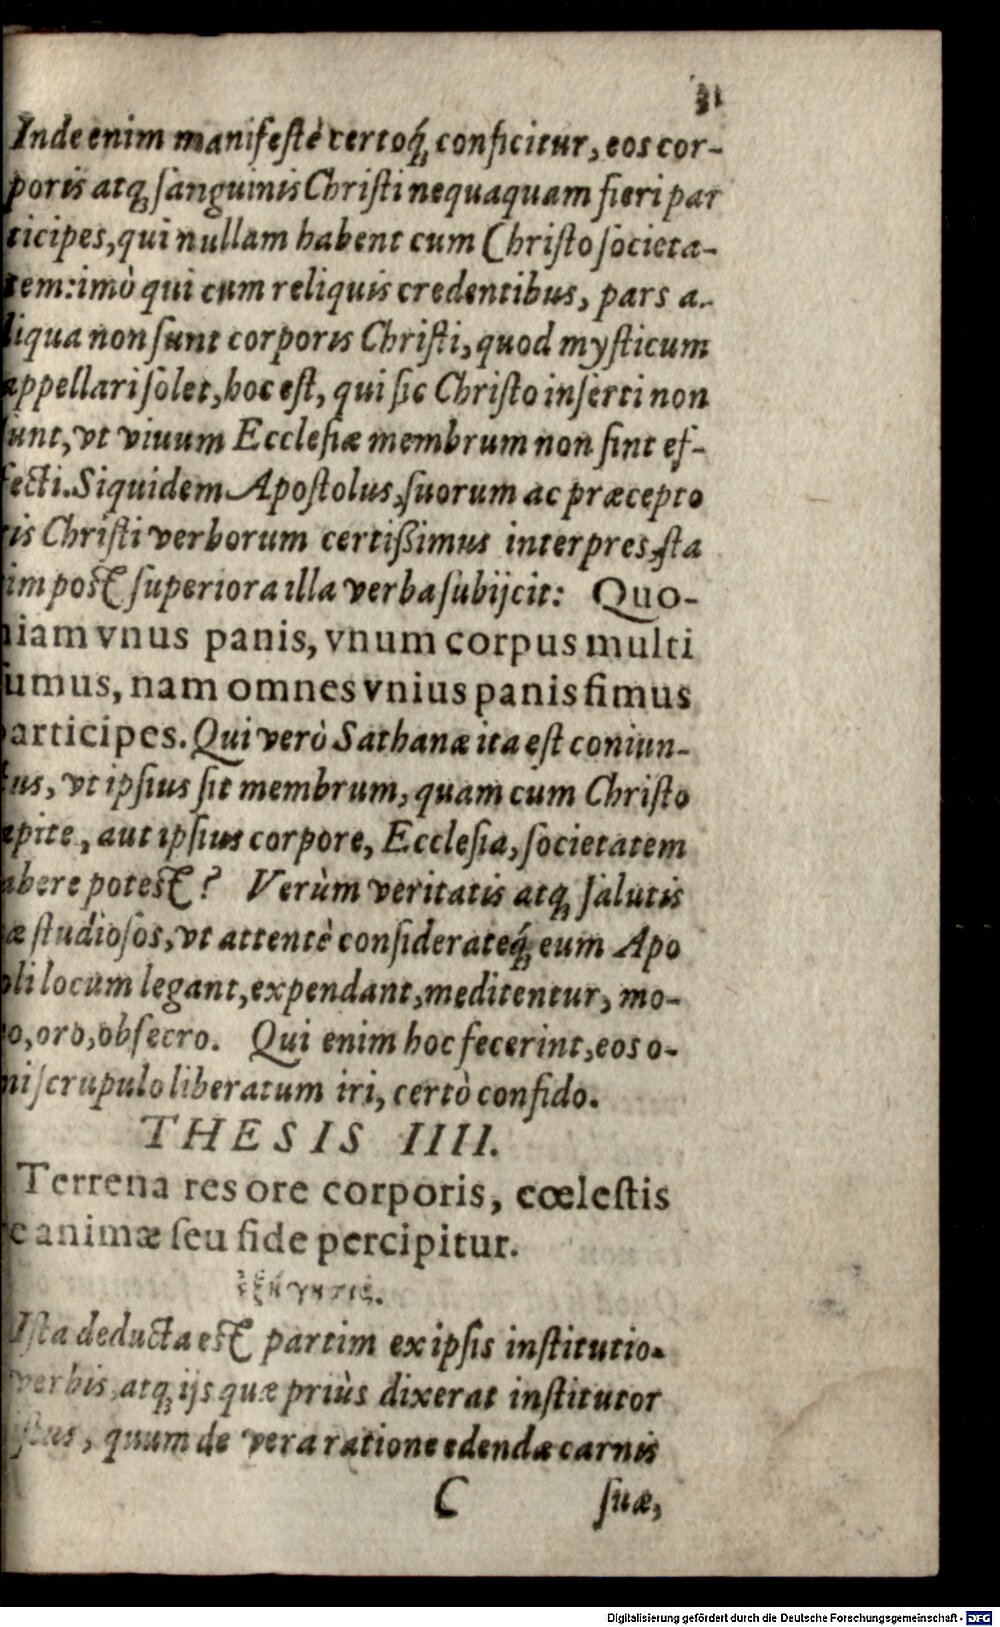 31
Inde enim manifestè certoq́; conficitur, eos cor-
poris atq; sanguinis Christi nequaquam fieri par
ticipes, qui nullam habent cum Christo societa-
tem: imò qui cum reliquis credentibus, pars a-
liqua non sunt corporis Christi, quod mysticum
appellari solet, hoc est, qui sic Christo inserti non
sunt, vt viuum Ecclesiæ membrum non sint ef-
fecti. Siquidem Apostolus, suorum ac præcepto
ris Christi verborum certißimus interpres, sta
tim post superiora illa verba subijcit: Quo-
niam vnus panis, vnum corpus multi
sumus, nam omnes vnius panis simus
participes. Qui verò Sathanæ ita est coniun-
ctus, vt ipsius sit membrum, quam cum Christo
capite, aut ipsius corpore, Ecclesia, societatem
habere potest? Verùm veritatis atq; salutis
æ studiosos, vt attentè considerateq́; eum Apo
oli locum legant, expendant, meditentur, mo-
o, oro, obsecro. Qui enim hoc fecerint, eos o-
mni scrupulo liberatum iri, certò confido.
THESIS IIII.
Terrena res ore corporis, cœlestis
e animæ seu fide percipitur.
ἐξήγησις.
Ista deducta est partim ex ipsis institutio-
verbis, atq; ijs quæ priùs dixerat institutor
, quum de vera ratione edendæ carnis
C suæ,
Digitalisierung gefördert durch die Deutsche Forschungsgemeinschaft - DFG